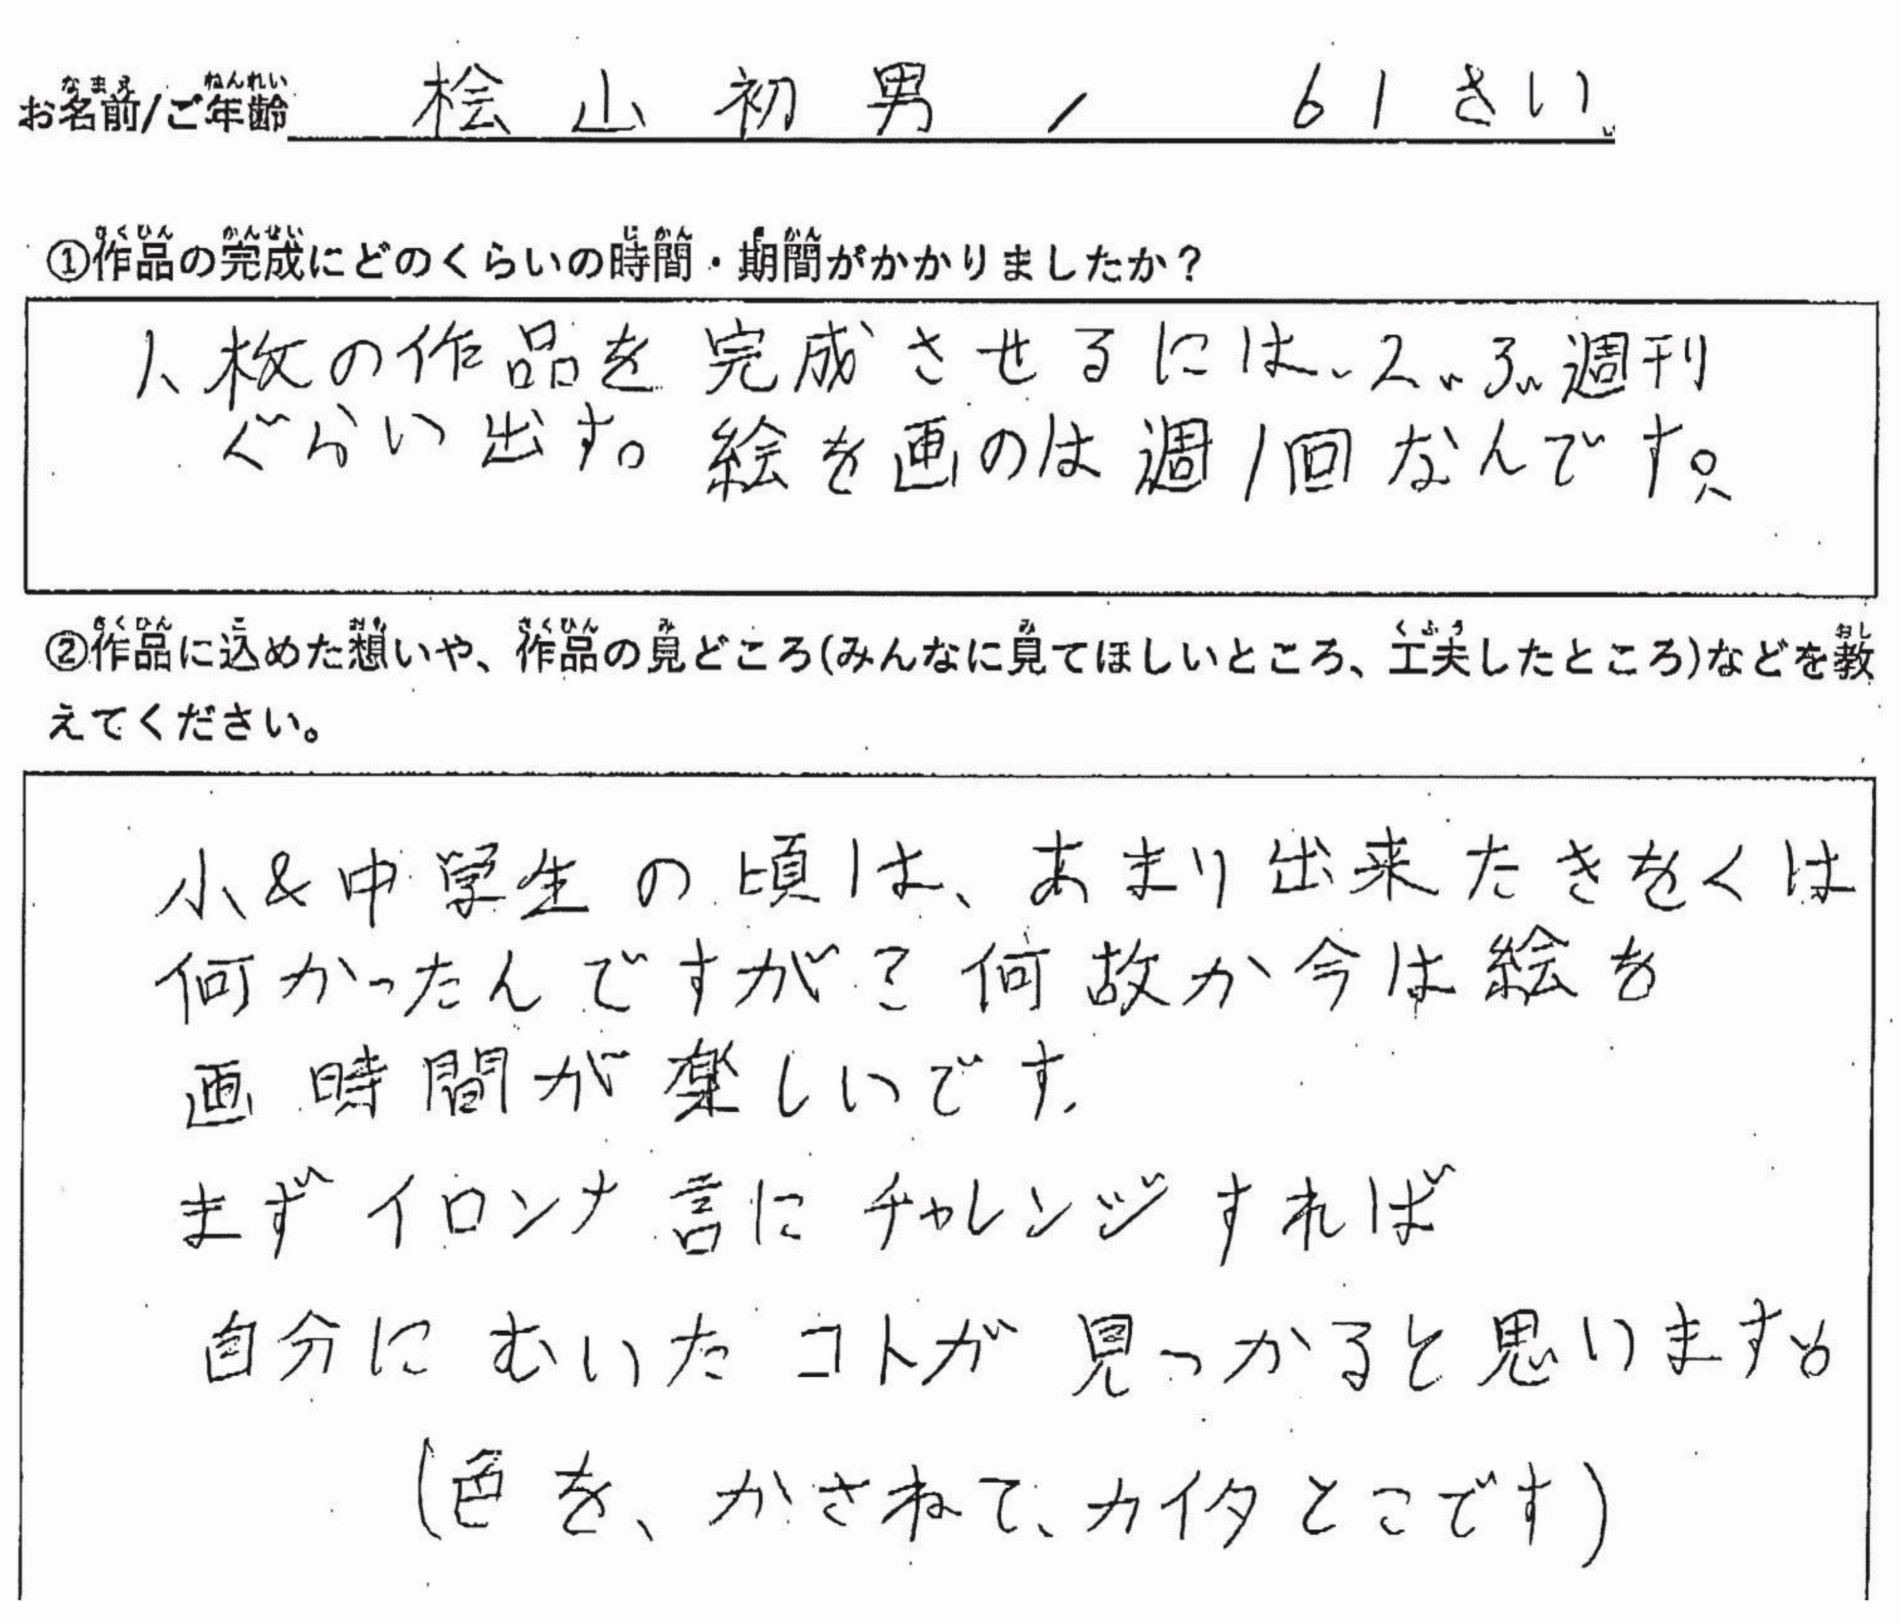 お名前/ご年齢 桧山初男 / 61さい
①作品の完成にどのくらいの時間・期間がかかりましたか？
1、枚の作品を完成させるには、2、3、週刊
ぐらい出す。絵を画のは週1回なんです。
②作品に込めた想いや、作品の見どころ(みんなに見てほしいところ、工夫したところ)などを教
えてください。
小&中学生の頃は、あまり出来たきをくは
何かったんですが？何故か今は絵を
画時間が楽しいです。
まずイロンナ言にチャレンジすれば
自分にむいたコトが見つかると思います。
(色を、かさねて、カイタとこです)